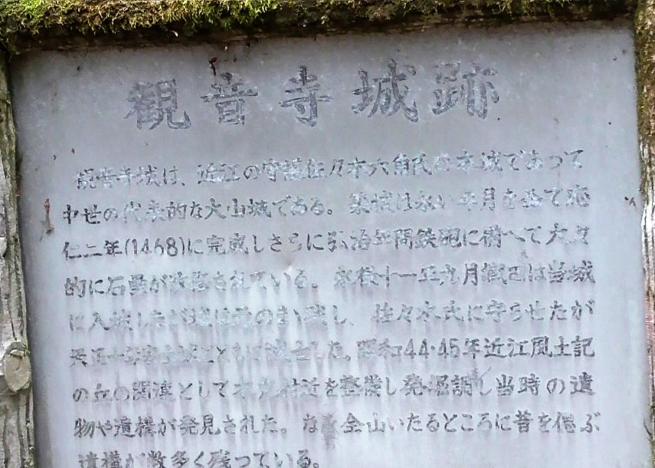 観音寺城跡
観音寺城は、近江の守護佐々木六角氏の本城であって
中世の代表的な大山城である。築城は永い年月を経て応
仁二年(1468)に完成しさらに弘治年間鉄砲に備へて大々
的に石塁が改修されている。永禄十一年九月信長は当城
に入城したが城は残し、佐々木氏に守らせたが
た。昭和44・45年近江風土記
の丘の関連として本丸付近を整備し発掘調し当時の遺
物や遺構が発見された。なお全山いたるところに昔を偲ぶ
遺構が数多く残っている。